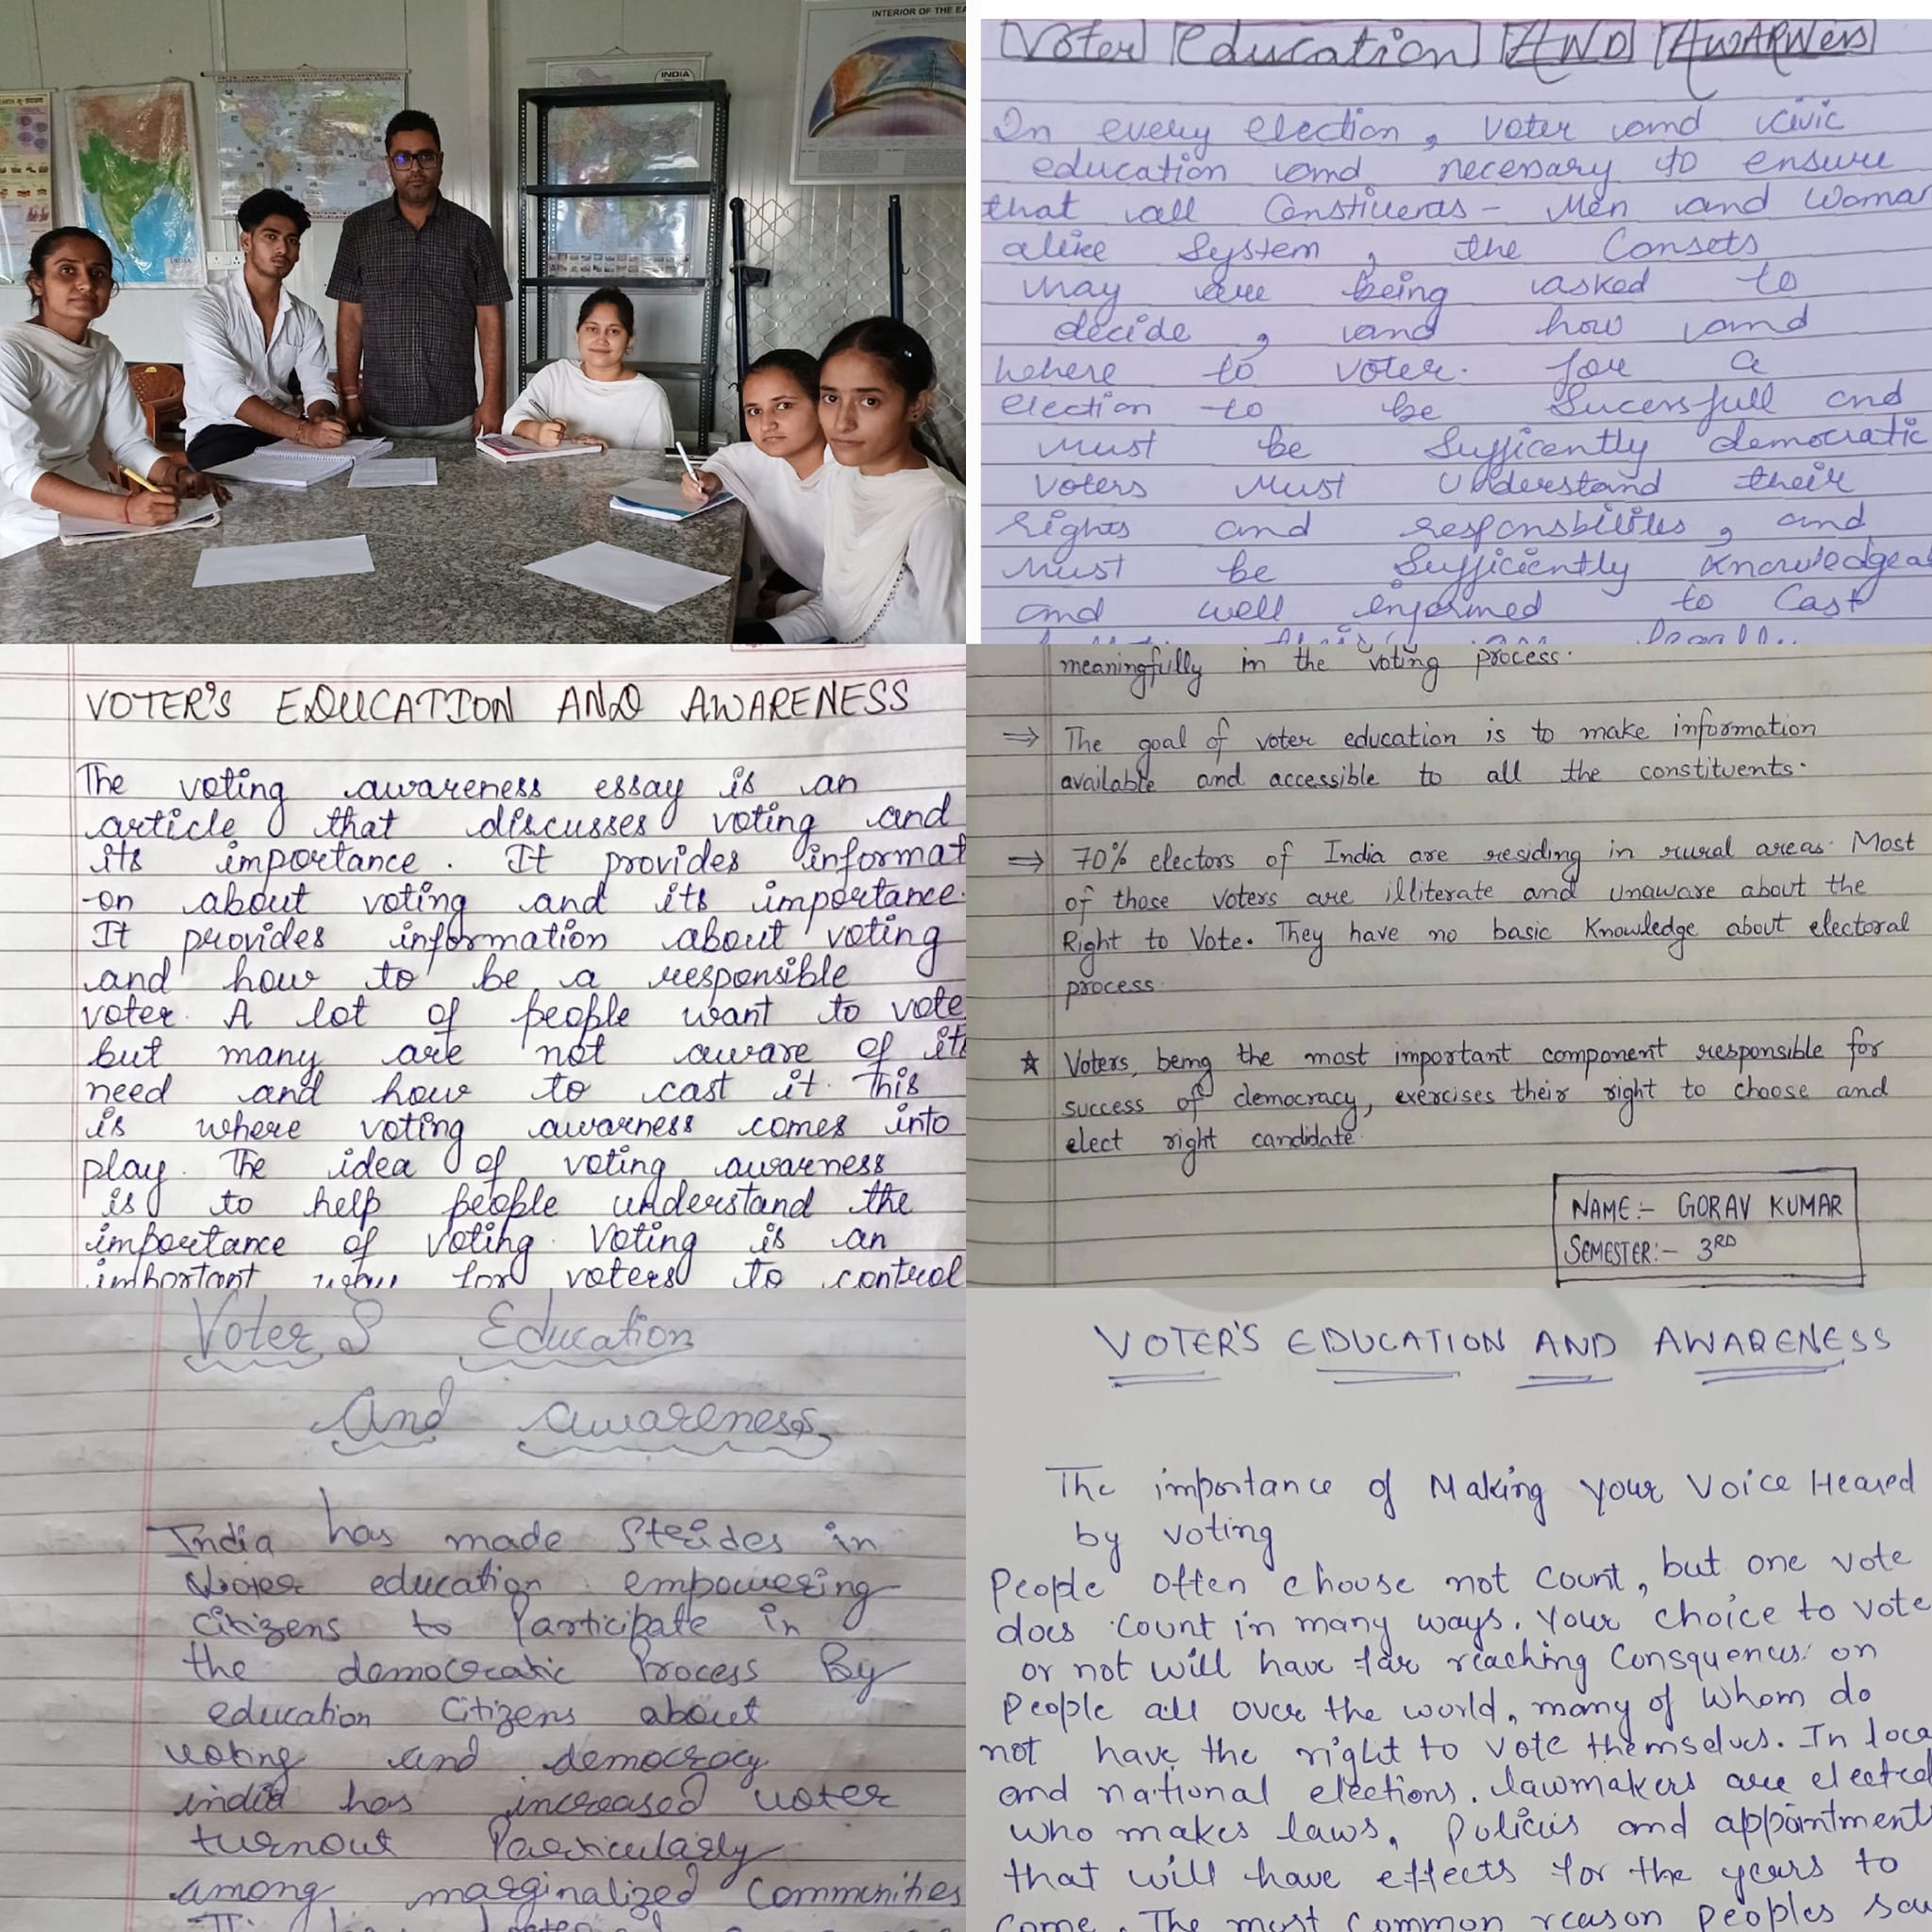 INTERIOR OF THE EA
INDIA
INDIA
Voter Education AND AWARNess
In every election, voter and civic
education and necessary to ensure
that all Constiuents - Men and Woman
alike System, the Consets
may are being asked to
decide, and how and
where to voter. for a
election to be Sucessfull and
must be Sufficently democratic
voters must Understand their
rights and responsbilities, and
must be Sufficiently Knowledgea
and well informed to Cast
VOTER'S EDUCATION AND AWARENESS
The voting awareness essay is an
article that discusses voting and
its importance. It provides informat
-on about voting and its importance.
It provides information about voting
and how to be a responsible
voter. A lot of people want to vote
but many are not aware of its
need and how to cast it. This
is where voting awarness comes into
play. The idea of voting awareness
is to help people understand the
importance of voting. Voting is an
important for voters to control
meaningfully in the voting process.
⇒ The goal of voter education is to make information
available and accessible to all the constituents.
⇒ 70% electors of India are residing in rural areas. Most
of those voters are illiterate and unaware about the
Right to Vote. They have no basic Knowledge about electoral
process.
★ Voters, being the most important component responsible for
success of democracy, exercises their right to choose and
elect right candidate.
NAME:- GORAV KUMAR
SEMESTER:- 3RD
Voter,S Education
And awareness
India has made Strides in
education empowering
citizens to Participate in
the democratic Process By
education Citizens about
voting and democracy
india has increased voter
turnout Particularly
among marginalized Communities
VOTER'S EDUCATION AND AWARENESS
The importance of Making Your Voice Heared
by voting
People often choose not count, but one vote
does count in many ways. Your choice to vote
or not will have far reaching Consquences on
People all over the world, many of whom do
not have the right to vote themselves. In loca
and national elections. lawmakers are elected
who makes laws, Policies and appointment
that will have effects for the years to
come. The most common reason peoples say